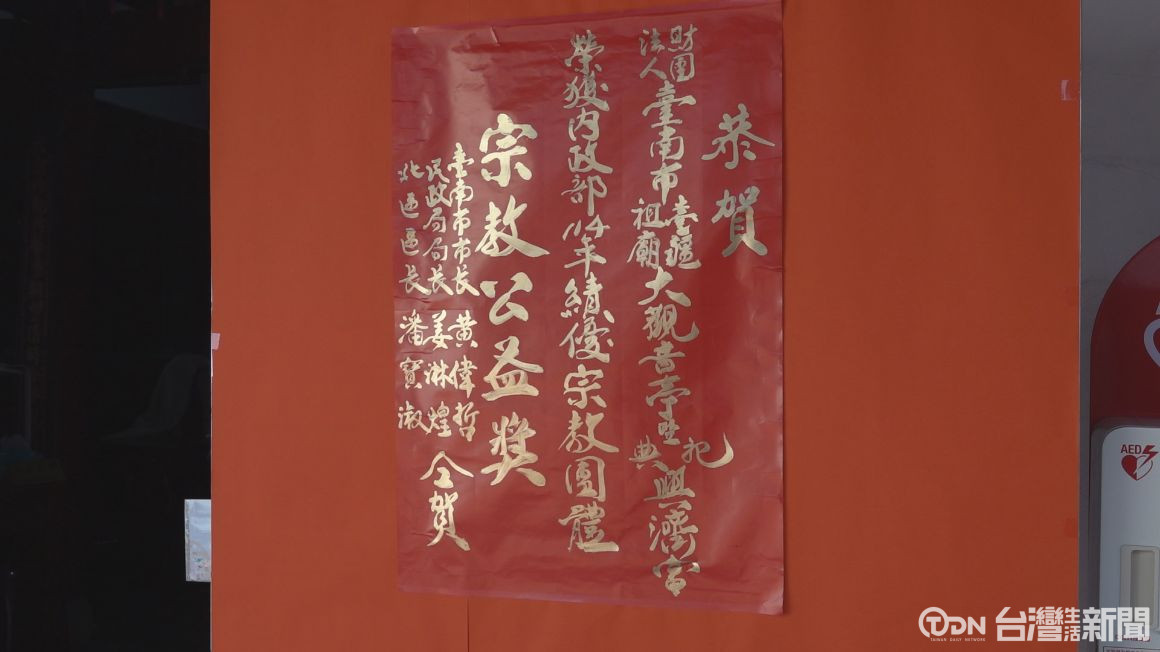 恭賀
財團法人臺南市臺疆祖廟大觀音亭暨祀典興濟宮
榮獲內政部114年績優宗教團體
宗教公益獎
臺南市市長 黃偉哲
民政局局長 姜淋煌
北區區長 潘寶淑
仝賀
AED
TDN 台灣生活新聞
TAIWAN DAILY NETWORK